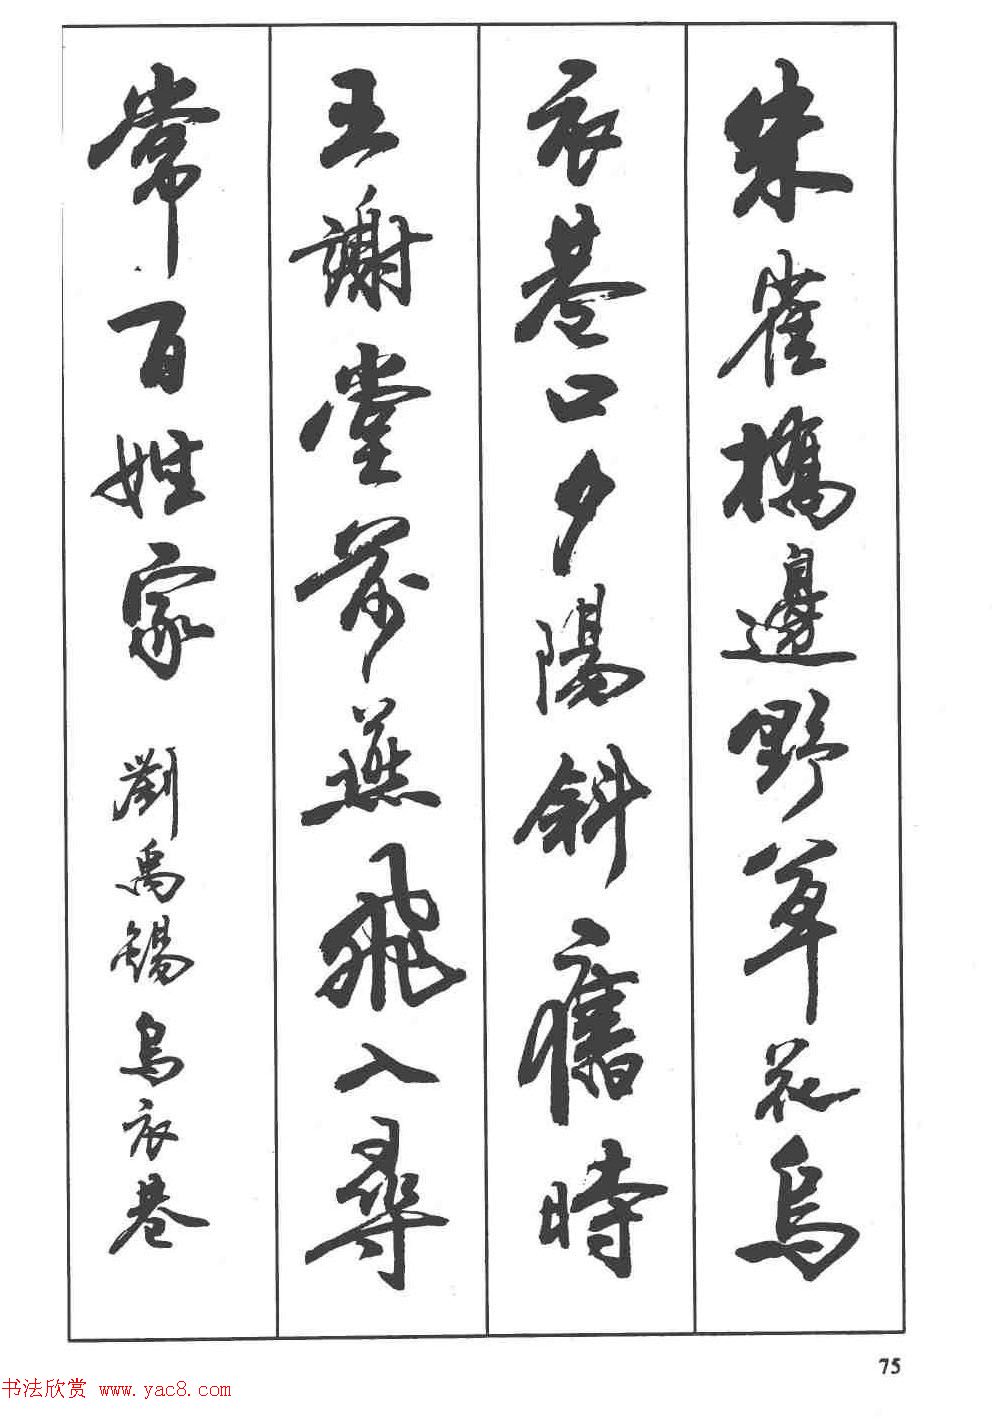 朱雀橋邊野草花烏
衣巷口夕陽斜舊時
王謝堂前燕飛入尋
常百姓家 劉禹錫烏衣巷
75
书法欣赏 www.yac8.com